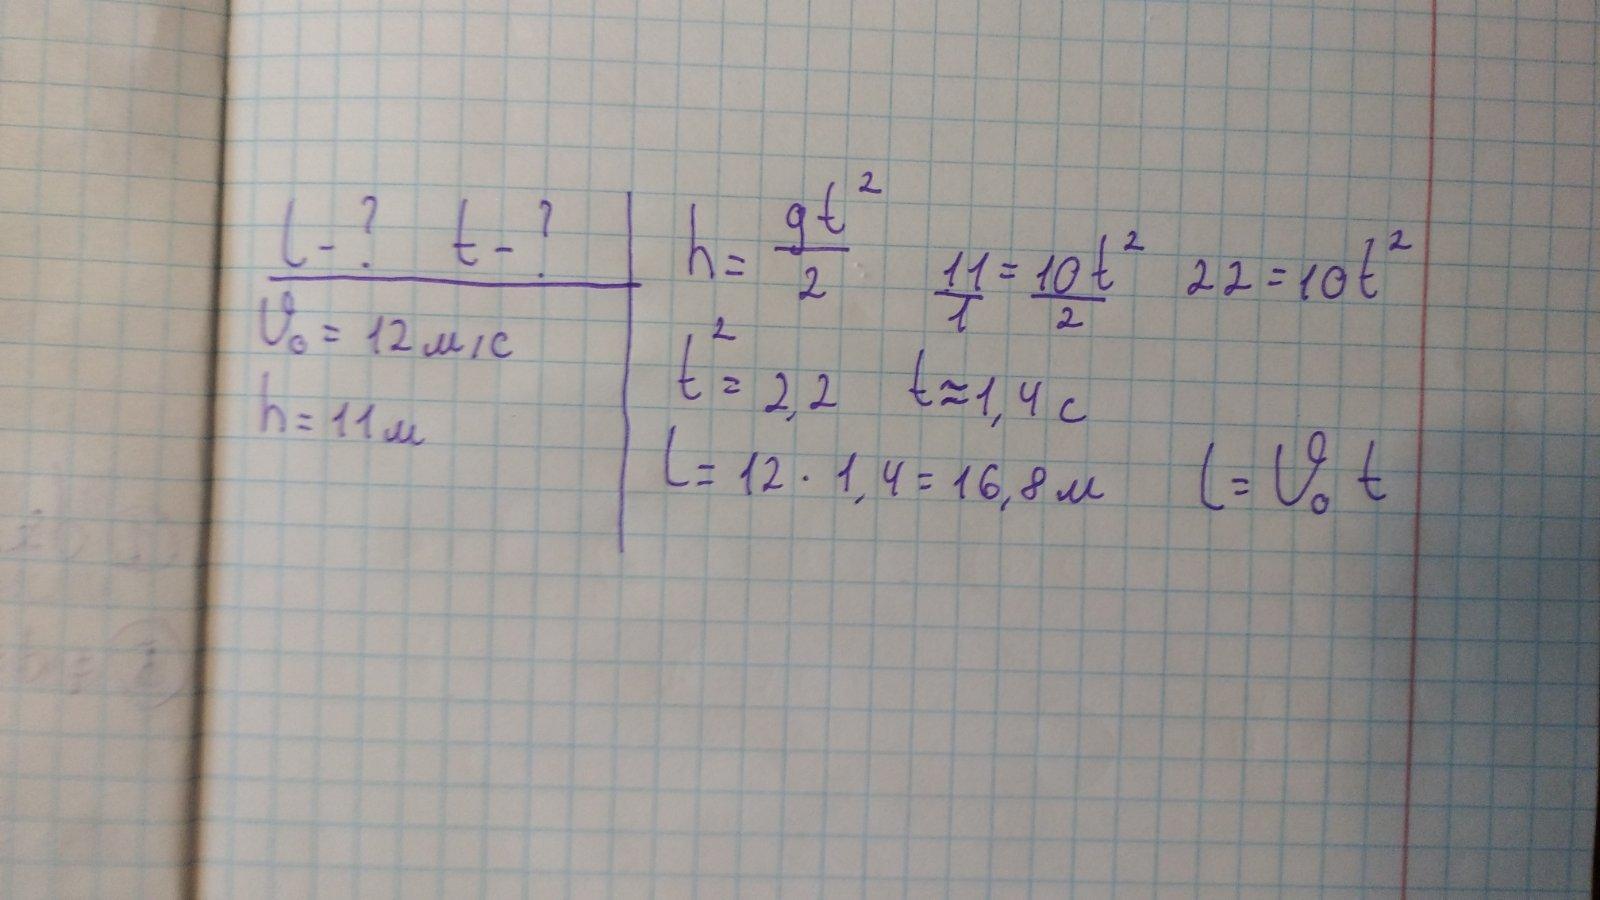 l - ? t - ?
V₀ = 12 м/с
h = 11 м
h = gt²/2 11/1 = 10t²/2 22 = 10t²
t² = 2,2 t ≈ 1,4 с
l = 12 · 1,4 = 16,8 м l = V₀ t